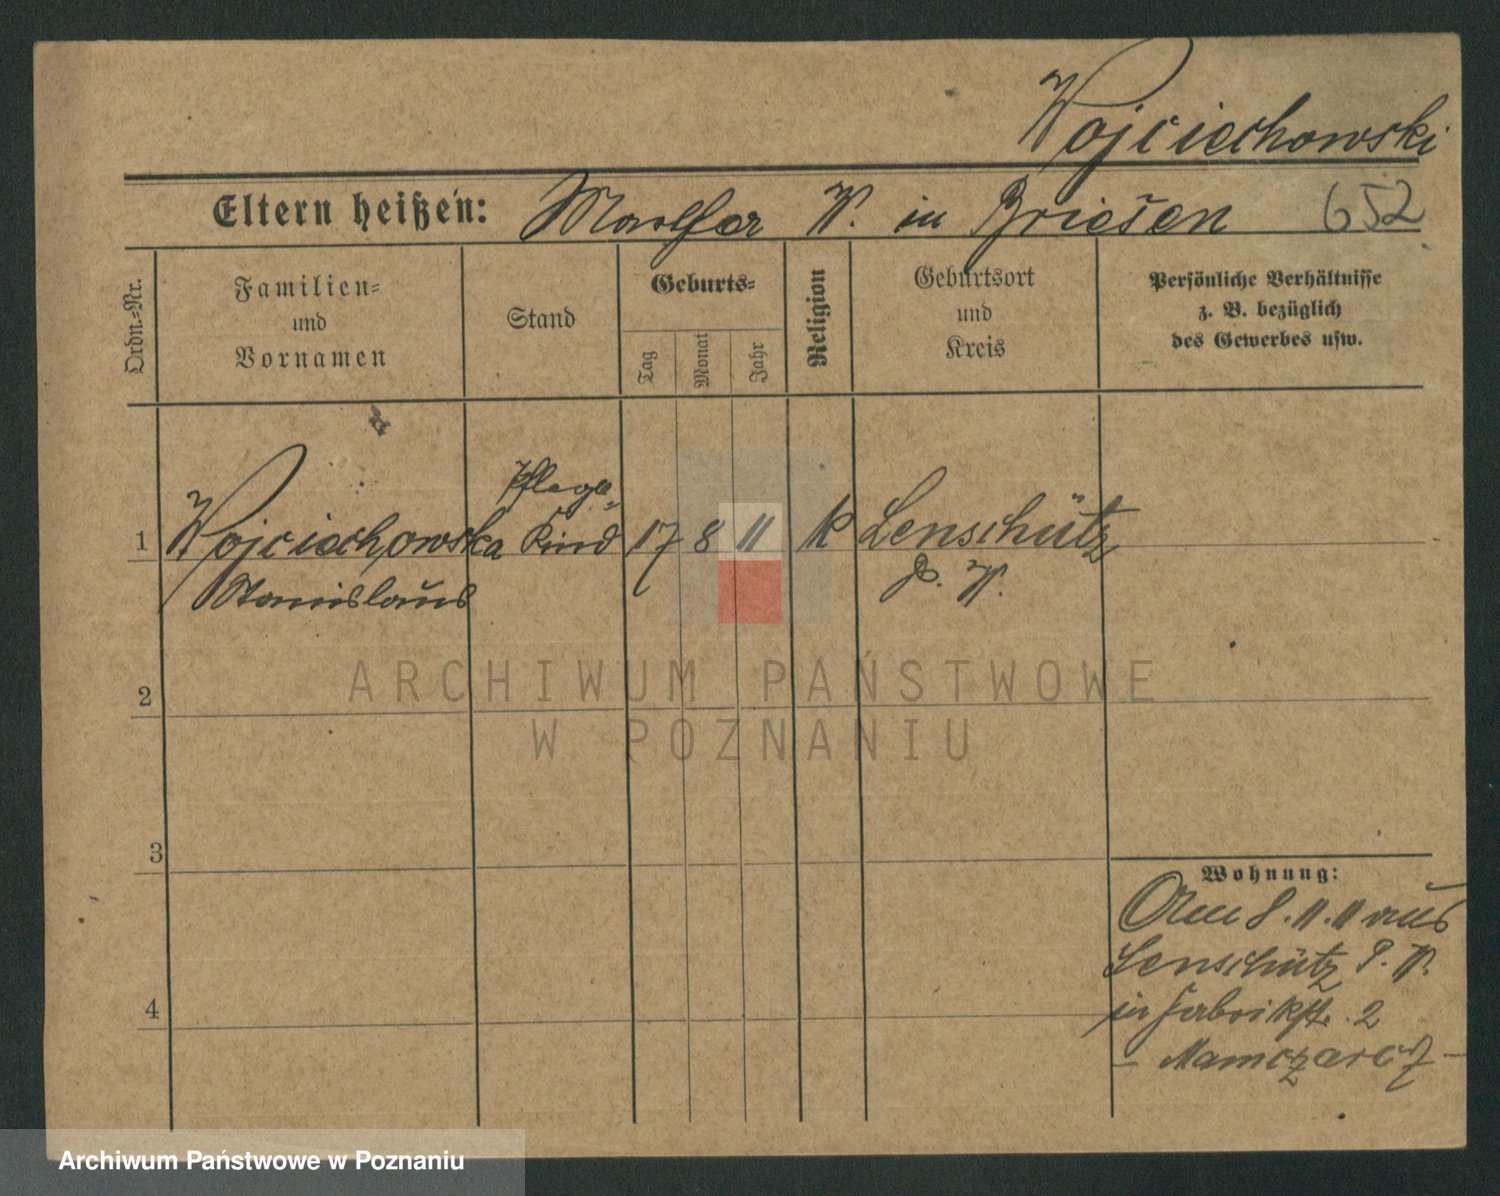 Wojciechowski
Eltern heißen: W. in Briesen 652
Ordn.=Nr.
Familien=
und
Vornamen
Stand
Geburts=
Tag
Monat
Jahr
Religion
Geburtsort
und
Kreis
Persönliche Verhältnisse
z. B. bezüglich
des Gewerbes usw.
Pflege
1 Wojciechowska Kind 17 8 11 k Lenschütz
Stanislaus P. W.
2
3
4
Wohnung:
Am 8. 11. 11 aus
Lenschütz P. W.
in Fabrikst. 2
— Mamczarcz —
ARCHIWUM PAŃSTWOWE
W POZNANIU
Archiwum Państwowe w Poznaniu